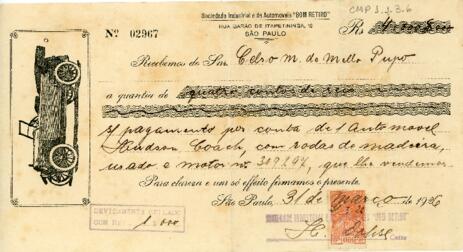 CMP 1.1.3.6
Sociedade Industrial e de Automoveis "BOM RETIRO"
RUA BARÃO DE ITAPETININGA, 12
SÃO PAULO
Nº 02967
Rs
Recebemos do Snr. Celso M. de Mello Pupo
a quantia de quatro contos de reis
pagamento por conta de 1 Automovel
Hudson Coach, com rodas de madeira,
usado e motor nº 309297, que lhe vendemos.
Para clareza e um só effeito firmamos o presente.
São Paulo, 31 de Março de 1926
DEVIDAMENTE SELLADO
COM RS. 1.000
SOCIEDADE INDUSTRIAL E DE AUTOMOVEIS "BOM RETIRO"
Caixa